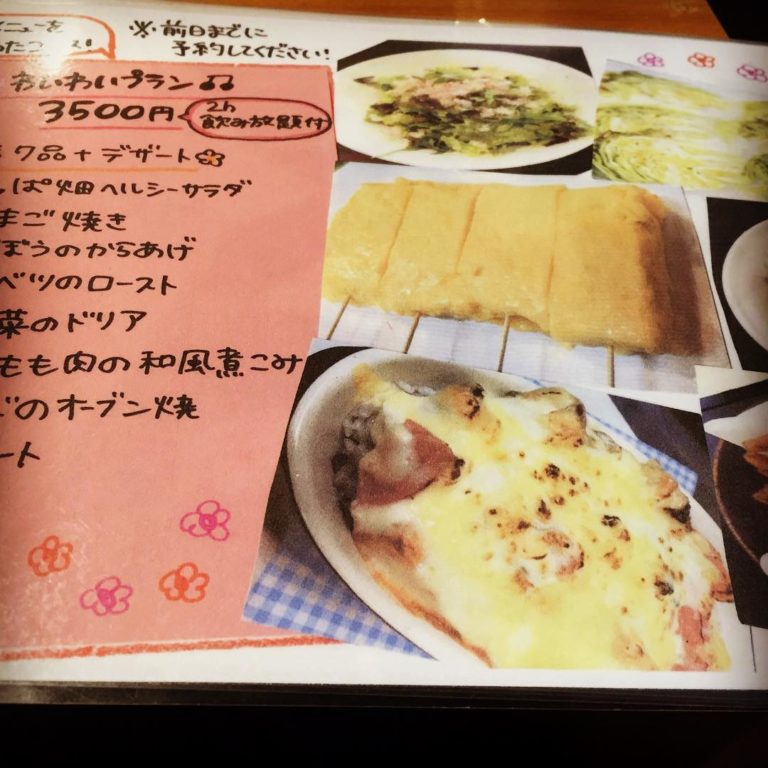 メニューを
※前日までに
予約してください!
わいわいプラン♫
3500円
2h
飲み放題付
7品+デザート
ぱ畑ヘルシーサラダ
まご焼き
ぼうのからあげ
ベツのロースト
菜のドリア
もも肉の和風煮こみ
どのオーブン焼
ート